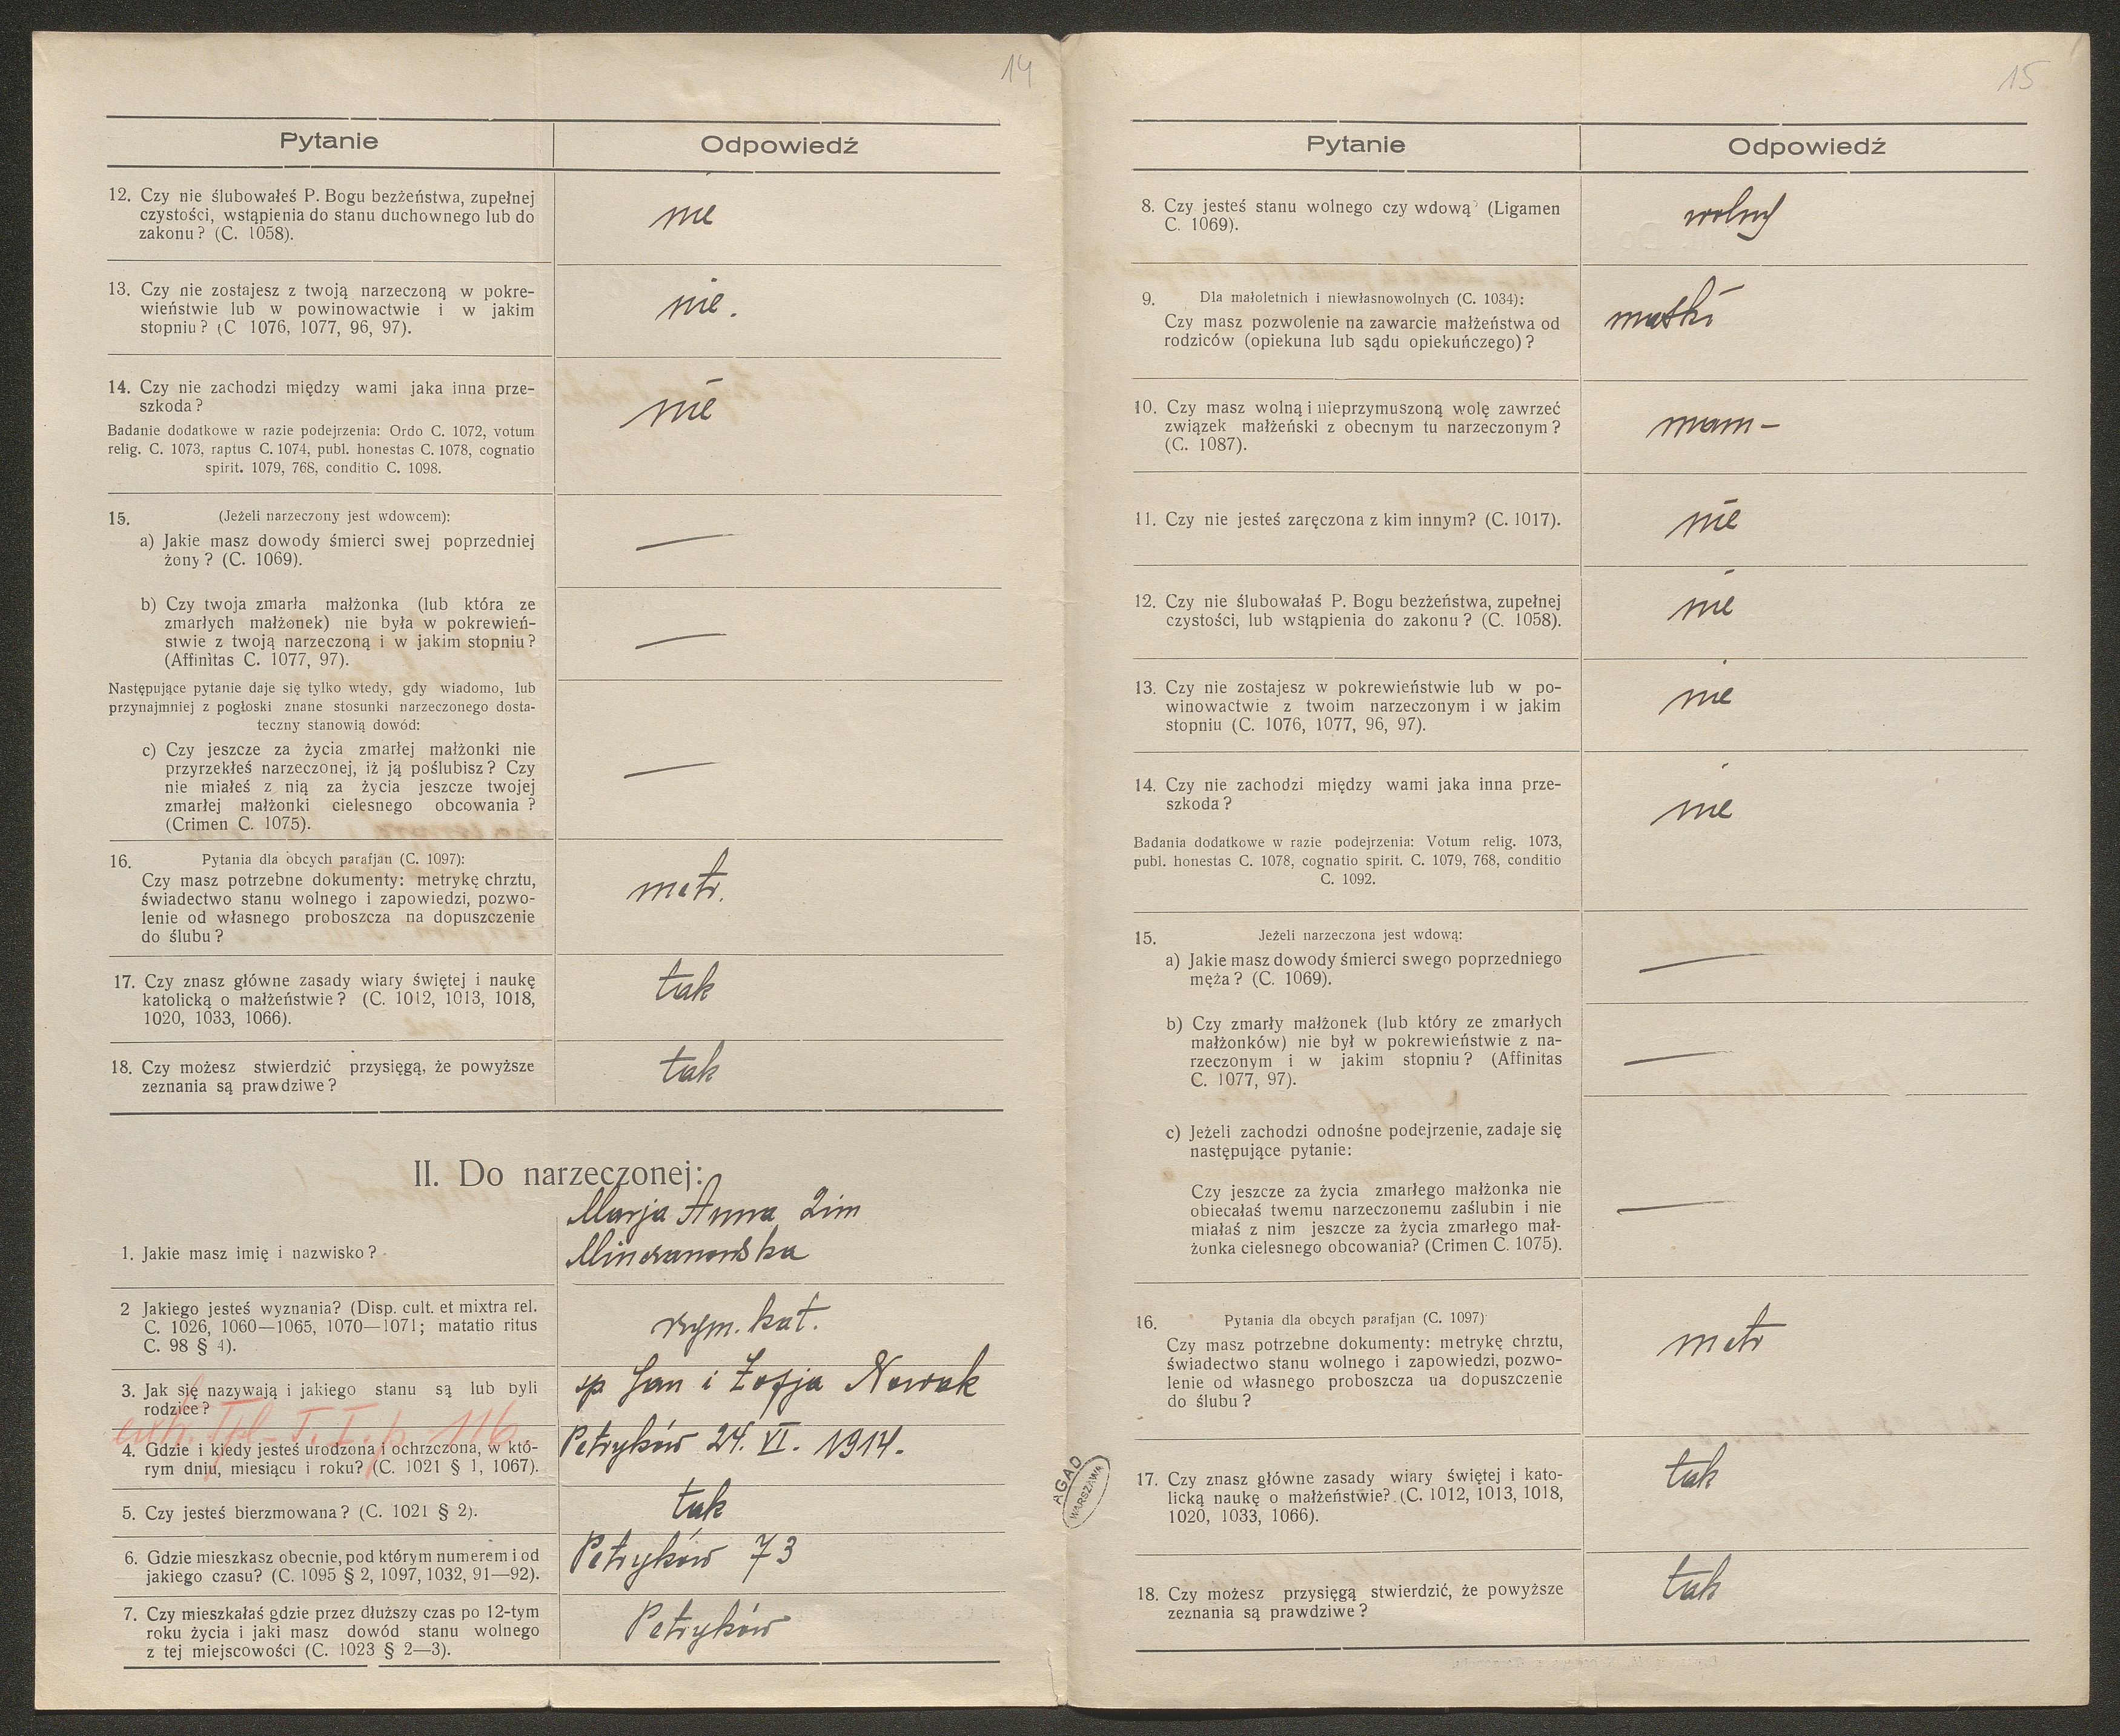 14
Pytanie
Odpowiedź
12. Czy nie ślubowałeś P. Bogu bezżeństwa, zupełnej
czystości, wstąpienia do stanu duchownego lub do
zakonu? (C. 1058).
nie
13. Czy nie zostajesz z twoją narzeczoną w pokre-
wieństwie lub w powinowactwie i w jakim
stopniu? (C 1076, 1077, 96, 97).
nie.
14. Czy nie zachodzi między wami jaka inna prze-
szkoda?
nie
Badanie dodatkowe w razie podejrzenia: Ordo C. 1072, votum
relig. C. 1073, raptus C. 1074, publ. honestas C. 1078, cognatio
spirit. 1079, 768, conditio C. 1098.
15. (Jeżeli narzeczony jest wdowcem):
a) Jakie masz dowody śmierci swej poprzedniej
żony? (C. 1069).
—
b) Czy twoja zmarła małżonka (lub która ze
zmarłych małżonek) nie była w pokrewień-
stwie z twoją narzeczoną i w jakim stopniu?
(Affinitas C. 1077, 97).
—
Następujące pytanie daje się tylko wtedy, gdy wiadomo, lub
przynajmniej z pogłoski znane stosunki narzeczonego dosta-
teczny stanowią dowód:
c) Czy jeszcze za życia zmarłej małżonki nie
przyrzekłeś narzeczonej, iż ją poślubisz? Czy
nie miałeś z nią za życia jeszcze twojej
zmarłej małżonki cielesnego obcowania?
(Crimen C. 1075).
—
16. Pytania dla obcych parafjan (C. 1097):
Czy masz potrzebne dokumenty: metrykę chrztu,
świadectwo stanu wolnego i zapowiedzi, pozwo-
lenie od własnego proboszcza na dopuszczenie
do ślubu?
metr.
17. Czy znasz główne zasady wiary świętej i naukę
katolicką o małżeństwie? (C. 1012, 1013, 1018,
1020, 1033, 1066).
tak
18. Czy możesz stwierdzić przysięgą, że powyższe
zeznania są prawdziwe?
tak
II. Do narzeczonej:
Marja Anna 2im
1. Jakie masz imię i nazwisko?
2 Jakiego jesteś wyznania? (Disp. cult. et mixtra rel.
C. 1026, 1060—1065, 1070—1071; matatio ritus
C. 98 § 4).
rzym. kat.
3. Jak się nazywają i jakiego stanu są lub byli
rodzice?
śp Jan i Zofja Nowak
T. I. p. 116
4. Gdzie i kiedy jesteś urodzona i ochrzczona, w któ-
rym dniu, miesiącu i roku? (C. 1021 § 1, 1067).
Petryków 24. VI. 1914.
5. Czy jesteś bierzmowana? (C. 1021 § 2).
tak
6. Gdzie mieszkasz obecnie, pod którym numerem i od
jakiego czasu? (C. 1095 § 2, 1097, 1032, 91—92).
Petryków 73
7. Czy mieszkałaś gdzie przez dłuższy czas po 12-tym
roku życia i jaki masz dowód stanu wolnego
z tej miejscowości (C. 1023 § 2—3).
Petryków
AGAD
WARSZAWA
15
Pytanie
Odpowiedź
8. Czy jesteś stanu wolnego czy wdową (Ligamen
C. 1069).
wolny
9. Dla małoletnich i niewłasnowolnych (C. 1034):
Czy masz pozwolenie na zawarcie małżeństwa od
rodziców (opiekuna lub sądu opiekuńczego)?
matki
10. Czy masz wolną i nieprzymuszoną wolę zawrzeć
związek małżeński z obecnym tu narzeczonym?
(C. 1087).
mam —
11. Czy nie jesteś zaręczona z kim innym? (C. 1017).
nie
12. Czy nie ślubowałaś P. Bogu bezżeństwa, zupełnej
czystości, lub wstąpienia do zakonu? (C. 1058).
nie
13. Czy nie zostajesz w pokrewieństwie lub w po-
winowactwie z twoim narzeczonym i w jakim
stopniu (C. 1076, 1077, 96, 97).
nie
14. Czy nie zachodzi między wami jaka inna prze-
szkoda?
nie
Badania dodatkowe w razie podejrzenia: Votum relig. 1073,
publ. honestas C. 1078, cognatio spirit. C. 1079, 768, conditio
C. 1092.
15. Jeżeli narzeczona jest wdową:
a) Jakie masz dowody śmierci swego poprzedniego
męża? (C. 1069).
—
b) Czy zmarły małżonek (lub który ze zmarłych
małżonków) nie był w pokrewieństwie z na-
rzeczonym i w jakim stopniu? (Affinitas
C. 1077, 97).
—
c) Jeżeli zachodzi odnośne podejrzenie, zadaje się
następujące pytanie:
Czy jeszcze za życia zmarłego małżonka nie
obiecałaś twemu narzeczonemu zaślubin i nie
miałaś z nim jeszcze za życia zmarłego mał-
żonka cielesnego obcowania? (Crimen C. 1075).
—
16. Pytania dla obcych parafjan (C. 1097)
Czy masz potrzebne dokumenty: metrykę chrztu,
świadectwo stanu wolnego i zapowiedzi, pozwo-
lenie od własnego proboszcza ua dopuszczenie
do ślubu?
metr
17. Czy znasz główne zasady wiary świętej i kato-
licką naukę o małżeństwie? (C. 1012, 1013, 1018,
1020, 1033, 1066).
tak
18. Czy możesz przysięgą stwierdzić, że powyższe
zeznania są prawdziwe?
tak